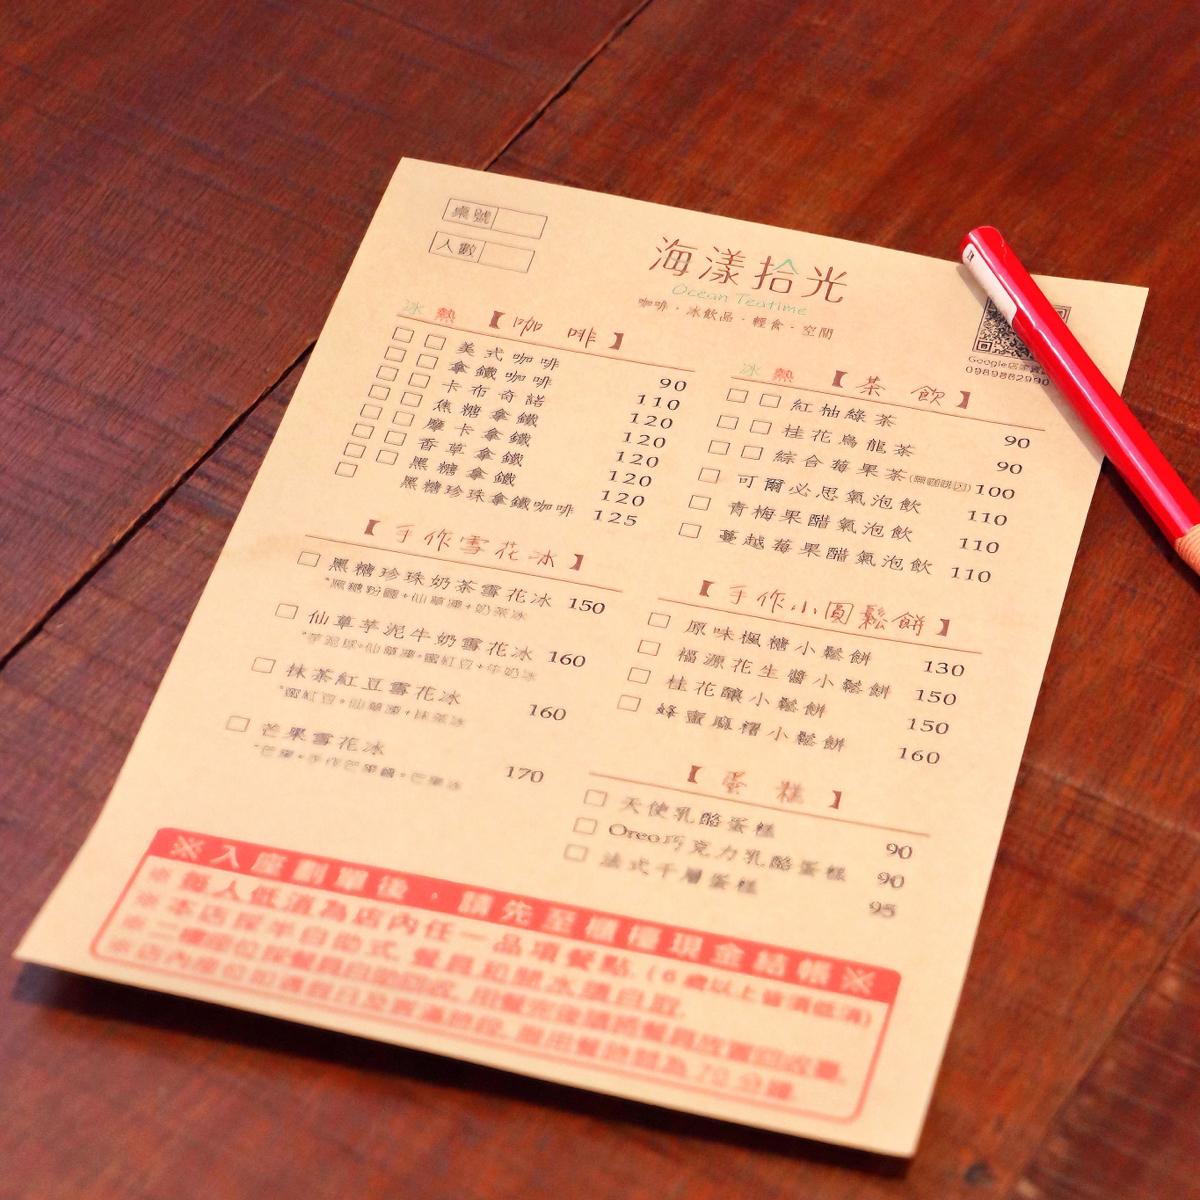 桌號
人數
海漾拾光
Ocean Teatime
咖啡·冰飲品·輕食·空間
Google店家資訊
0989882990
冰 熱 【咖 啡】
美式咖啡 90
拿鐵咖啡 110
卡布奇諾 120
焦糖拿鐵 120
摩卡拿鐵 120
香草拿鐵 120
黑糖拿鐵 120
黑糖珍珠拿鐵咖啡 125
【手作雪花冰】
黑糖珍珠奶茶雪花冰 150
*黑糖粉圓+仙草凍+奶茶冰
仙草芋泥牛奶雪花冰 160
*芋泥球+仙草凍+蜜紅豆+牛奶冰
抹茶紅豆雪花冰 160
*蜜紅豆+仙草凍+抹茶冰
芒果雪花冰 170
*芒果+手作芒果醬+芒果冰
冰 熱 【茶 飲】
紅柚綠茶 90
桂花烏龍茶 90
綜合莓果茶(無咖啡因) 100
可爾必思氣泡飲 110
青梅果醋氣泡飲 110
蔓越莓果醋氣泡飲 110
【手作小圓鬆餅】
原味楓糖小鬆餅 130
福源花生醬小鬆餅 150
桂花釀小鬆餅 150
蜂蜜麻糬小鬆餅 160
【蛋 糕】
天使乳酪蛋糕 90
Oreo巧克力乳酪蛋糕 90
法式千層蛋糕 95
※入座劃單後，請先至櫃檯現金結帳※
※每人低消為店內任一品項餐點.(6歲以上皆須低消)
※本店採半自助式,餐具和開水請自取.
※二樓座位採餐具自助回收,用餐完後請將餐具放置回收臺.
※店內座位如遇假日及客滿時段,限用餐時間為70分鐘.